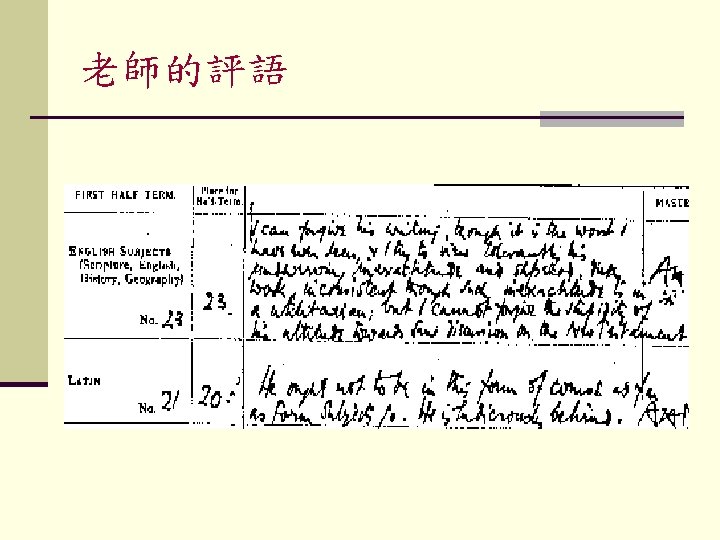 老師的評語
FIRST HALF TERM.
Place for Half Term.
MASTE
ENGLISH SUBJECTS
(Scripture, English,
History, Geography)
No. 23
23.
I can forgive his writing, though it is the worst I
have ever seen, & I try to view tolerantly his
unswerving inexactitude and slipshod, dirty,
work, inconsistent though such inexactitude is in
a utilitarian; but I cannot forgive the stupidity of
his attitude towards sane discussion on the New Testament
LATIN
No. 21
20.
He ought not to be in this form of course as far
as form subjects go. He is ludicrously behind.